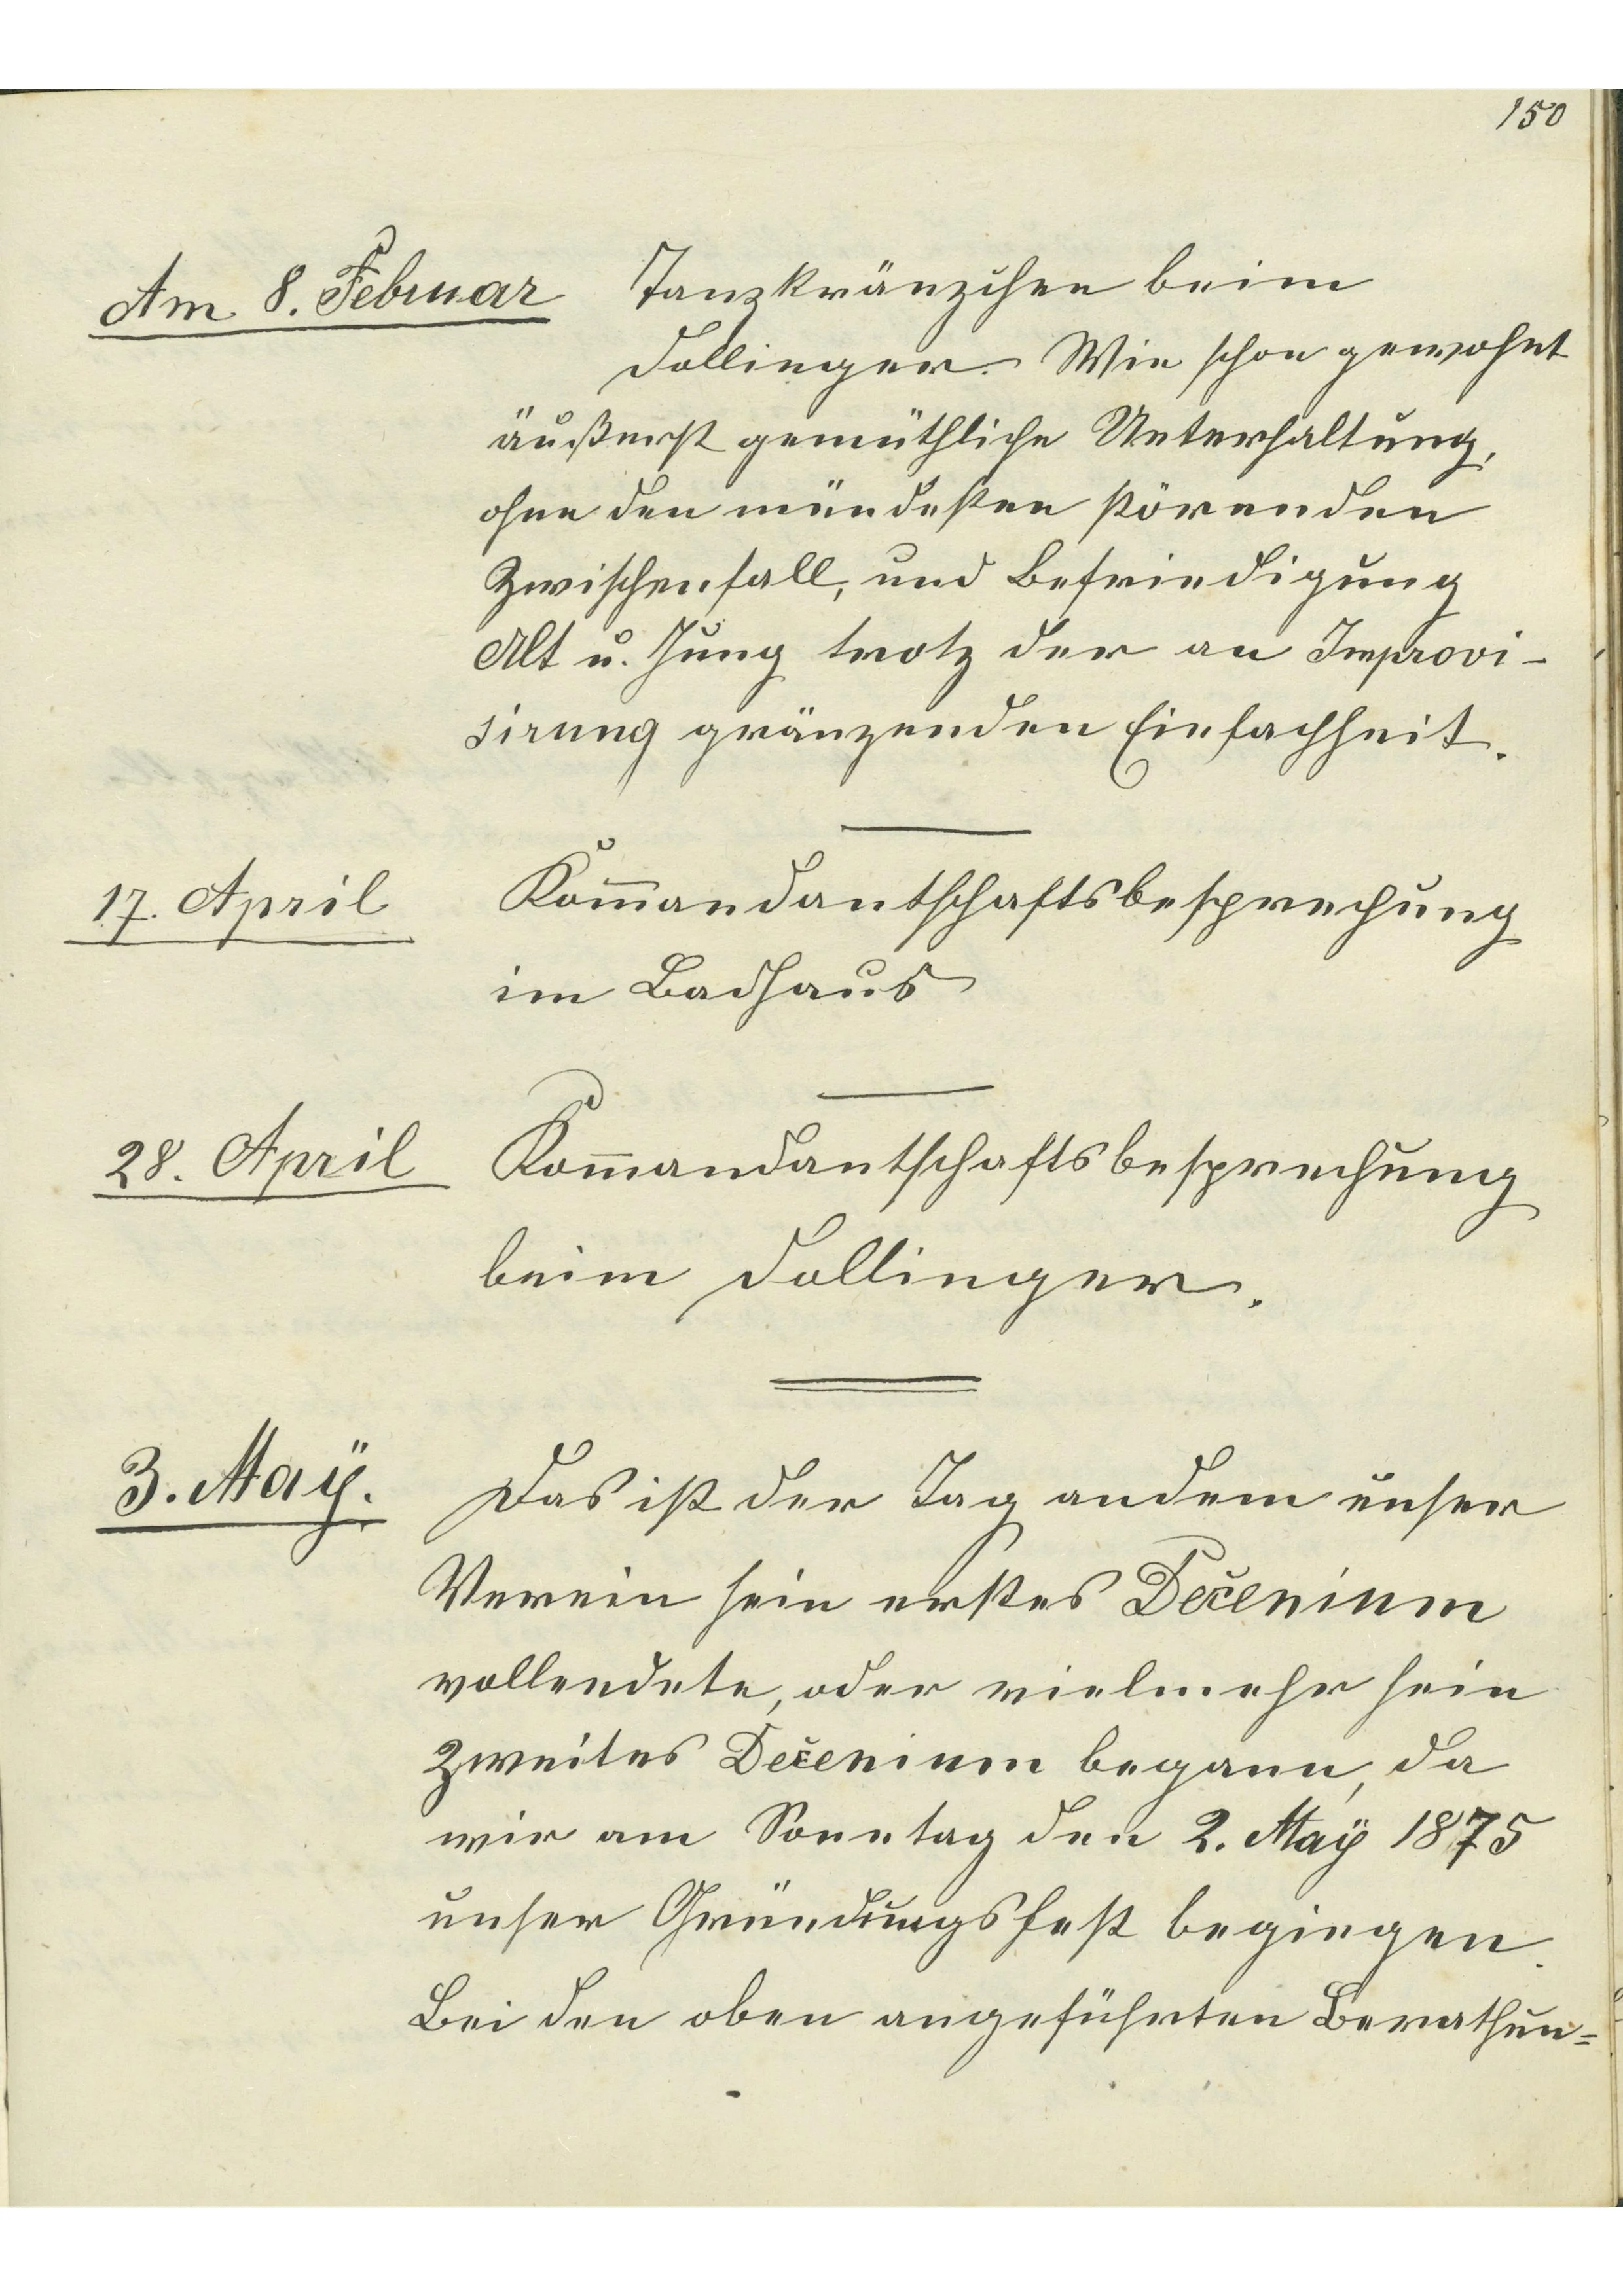 150
Am 8. Februar Tanzkränzchen beim
Dollinger. Wie schon gewohnt
äußerst gemüthliche Unterhaltung,
ohne den mündesten störenden
Zwischenfall, und Befriedigung
Alt u. Jung trotz der an Improvi-
sirung gränzenden Einfachheit.
17. April Kom̅andantschaftsbesprechung
im Badhaus
28. April Kom̅andantschaftsbesprechung
beim Dollinger.
3. Maÿ. Das ist der Tag andem unser
Verein sein erstes Dečenium
vollendete, oder vielmehr sein
zweites Dečenium begann, da
wir am Sonntag den 2. Maÿ 1875
unser Gründungsfest begingen.
Bei den oben angeführten Berathun=